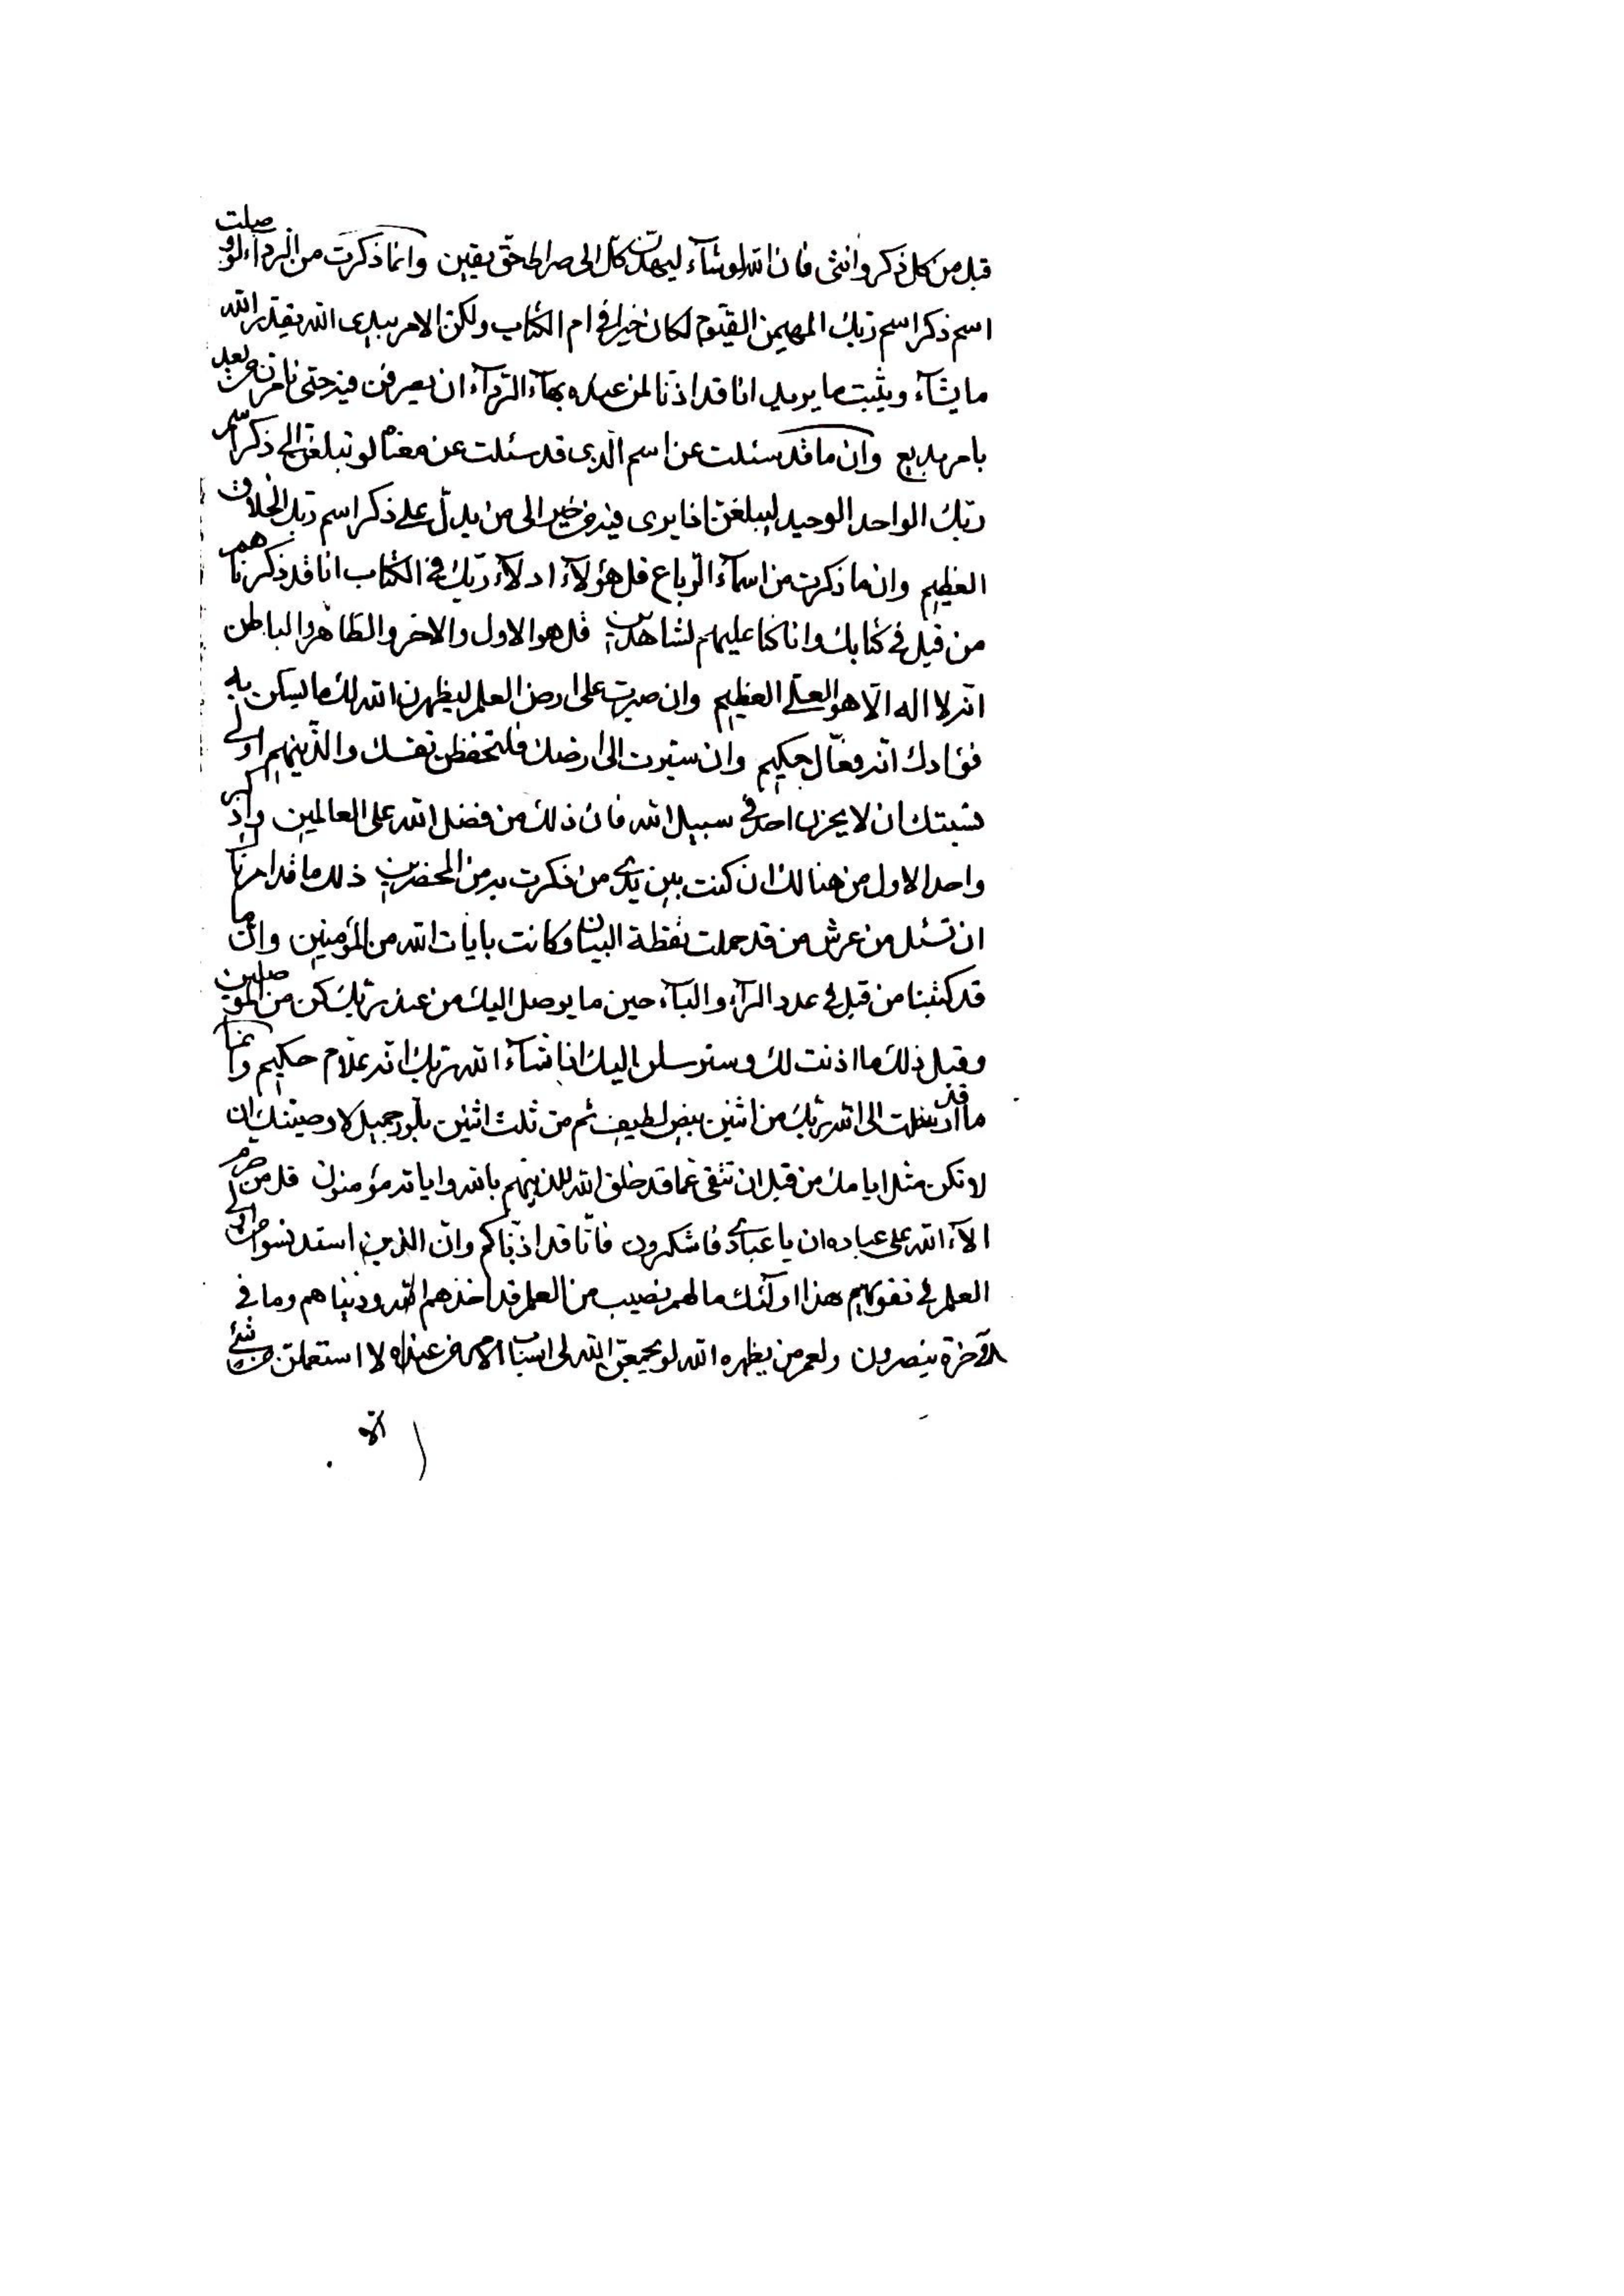 قبل من كل ذكر وانثى فان الله لو شآء ليهدين كل الى صراط حق يقين وانما ذكرت من الردآء لو وصلت
اسم ذكر اسم ربك المهيمن القيوم لكان خيرا في ام الكتاب ولكن الامر بيدى الله يقدر الله
ما يشآء ويثبت ما يريد انا قد اذنا لمن عنده بهآء الردآء ان يصرفن فيه حتى نامرن من بعد
بامر بديع وان ما قد سئلت عن اسم الذى قد سئلت عن لو تبلغن الى ذكر اسم
ربك الواحد الوحيد ليبلغن اذا يرى فيه من خير الى من يدل على ذكر اسم ربك الخلاق
العظيم وان ما ذكرت من اسمآء الرباع قل هؤلآء ادلآء ربك في الكتاب انا قد ذكرناهم
من قبل في كتابك وانا كنا عليهم لشاهدين قل هو الاول والاخر والظاهر والباطن
انه لا اله الا هو العلى العظيم وان صبرت على ارض العلم ليظهرن الله لك ما يسكن به
فؤادك انه فعال حكيم وان سيرت الى ارضك فلتحفظن نفسك والذينهم اولى
نسبتك ان لا يحزن احد في سبيل الله فان ذلك من فضل الله على العالمين واذكر
واحد الاول من هنالك ان كنت بين يدى من ذكرت به من المحضرين ذلك ما قد امرناك
ان تسئل من عرش من قد حملت نقطة البيان وكانت بايات الله من المؤمنين وان ما
قد كتبنا من قبل في عدد الرآء والبآء حين ما يوصل اليك من عند ربك كن من الموصلين
وقبل ذلك ما اذنت لك وسنرسلن اليك اذا شآء الله ربك انه علام حكيم وانما
ما قد الى الله ربك من اثنين بيض لطيف ثم من ثلث اثنين بلور جميل لاوصيتك ان
لا تكن مثل ايامك من قبل ان تتقى عما قد خلق الله للذينهم بالله واياته مؤمنون قل من حرم
الآء الله على عباده ان يا عبادى فاشكرون فانا قد اذناكم وان الذين اولى
العلم في نفوسهم هذا اولئك ما لهم نصيب من العلم قد اخذهم الله ودنياهم وما في
الآخرة ينصرون ولعمر من يظهره الله لو يجمعن الله لى اسباب الامر من عنده لا استعلن من شئ
الا